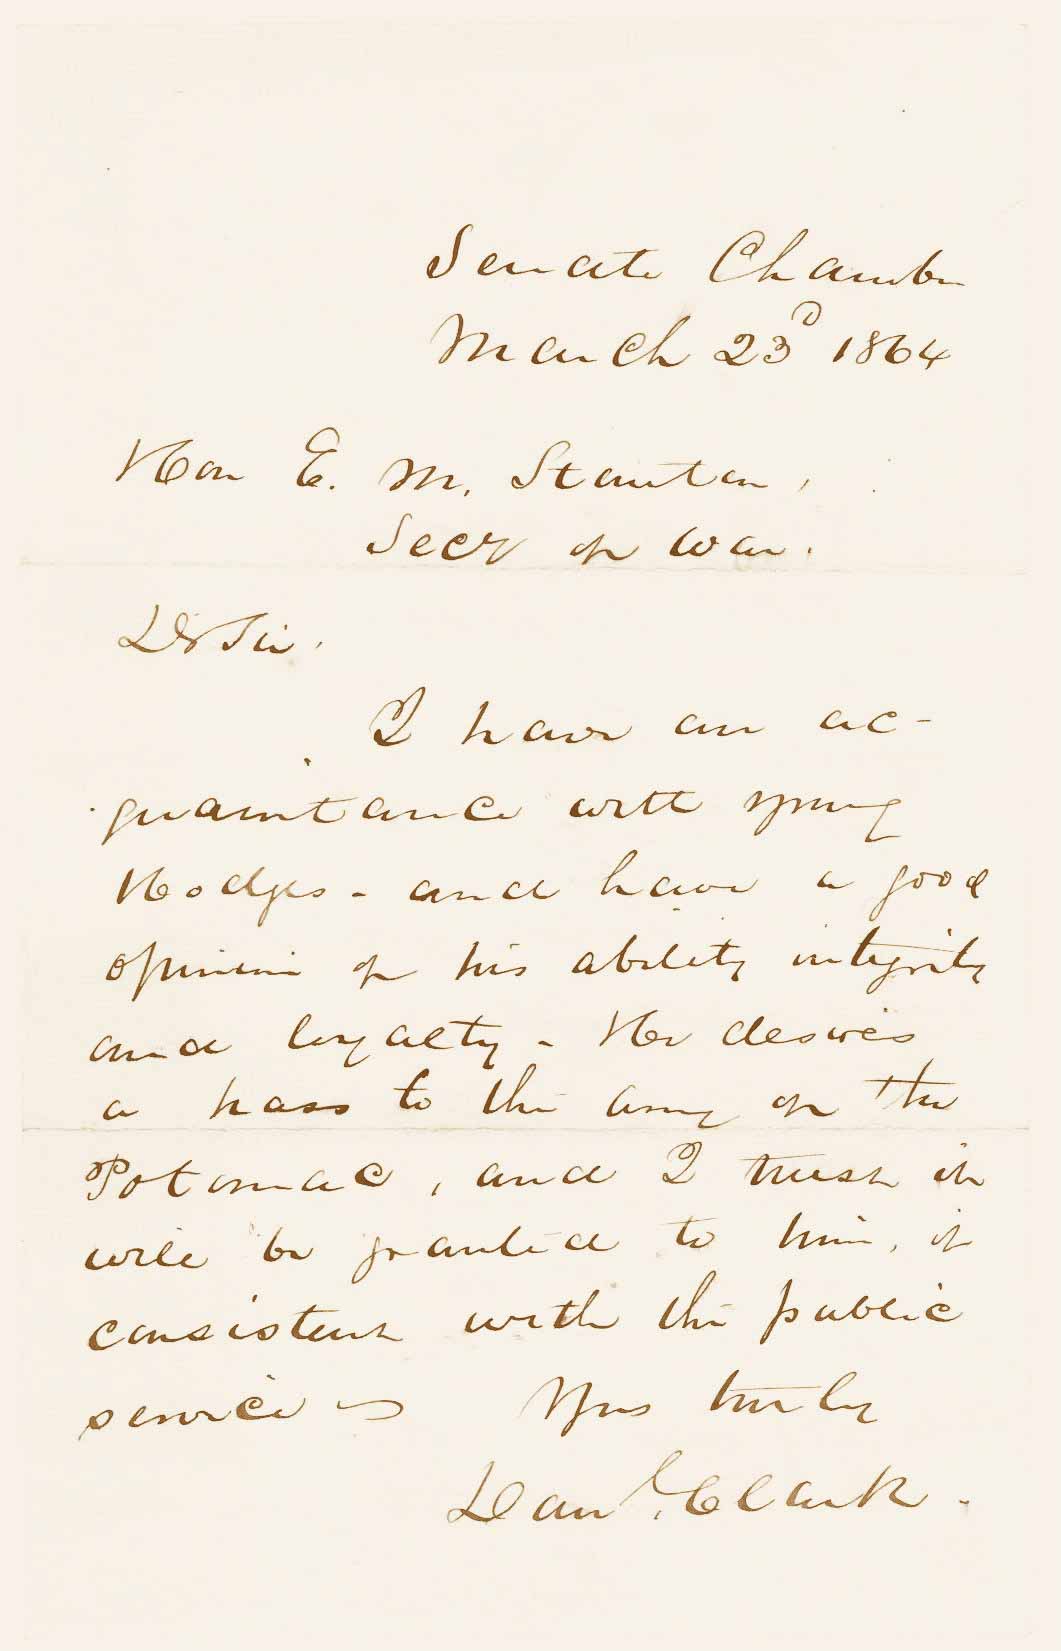 Senate Chamber
March 23d 1864
Hon E. M. Stanton,
Secy of War.
Dr Sir.
I have an ac-
quaintance with young
Hodges - and have a good
opinion of his ability integrity
and loyalty - He desires
a pass to the army of the
Potomac, and I trust it
will be granted to him, if
consistent with the public
service - Yrs truly
Danl. Clark.